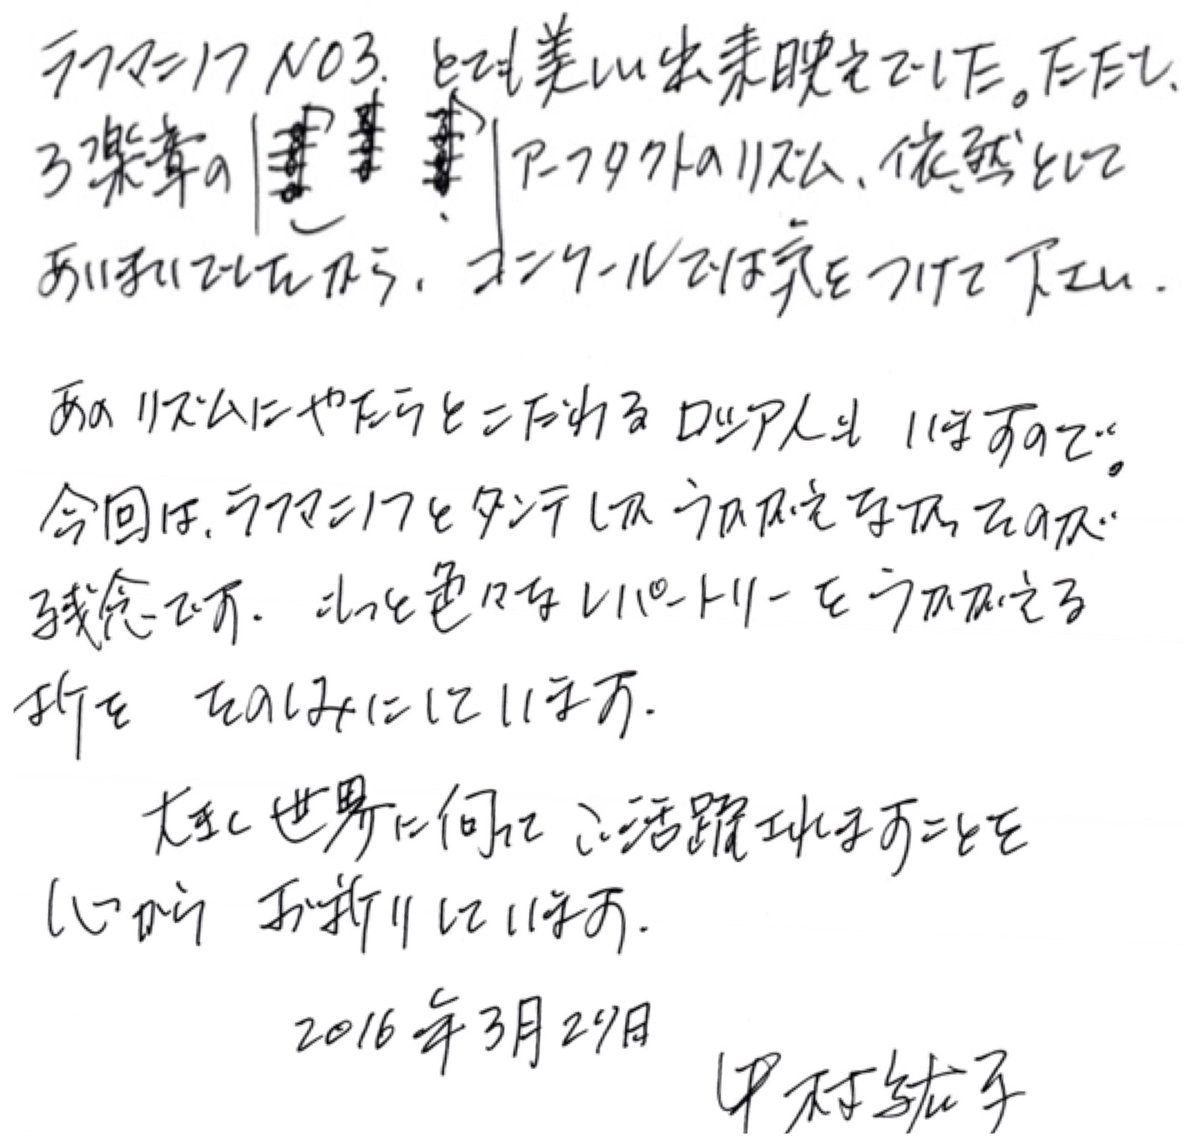 ラフマニノフ NO3. とても美しい出来映えでした。ただし、
3楽章の アーフタクトのリズム、依然として
あいまいでしたから、コンクールでは気をつけて下さい.
あのリズムにやたらとこだわるロシア人も いますので。
今回は、ラフマニノフとダンテしか うかがえなかったのが
残念です. もっと色々なレパートリーを うかがえる
折を たのしみにしています.
大きく世界に向って ご活躍されますことを
心から お祈りしています.
2016年3月27日
中村紘子